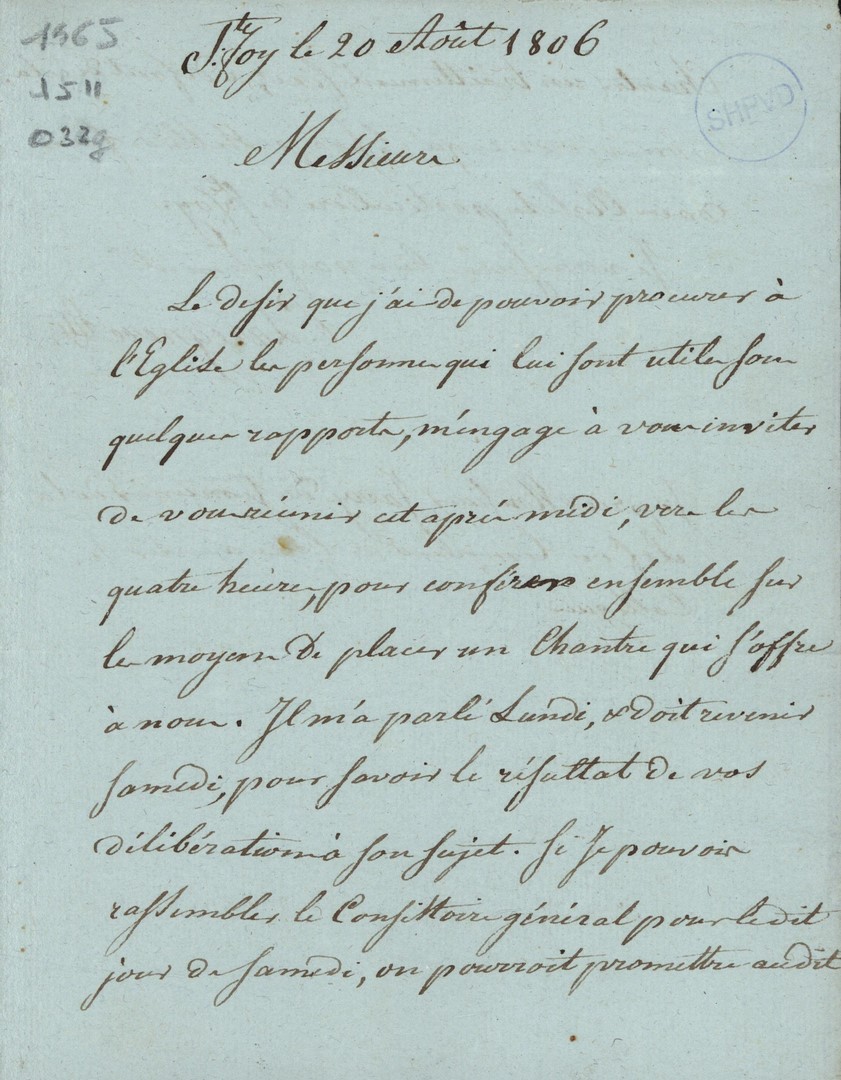 1565
1511
032g
SHPVD
Ste foy le 20 Août 1806
Messieurs
Le desir que j'ai de pouvoir procurer à
l'Eglise les personnes qui lui sont utiles sous
quelques rapports, m'engage à vous inviter
de vous réunir cet après midi, vers les
quatre heures, pour conférer ensemble sur
les moyens de placer un Chantre qui s'offre
à nous. Il m'a parlé Lundi, & doit revenir
samedi, pour savoir le résultat de vos
délibérations à son sujet. Si Je pouvois
rassembler le Consistoire général pour le dit
jour de samedi, on pourroit promettre audit